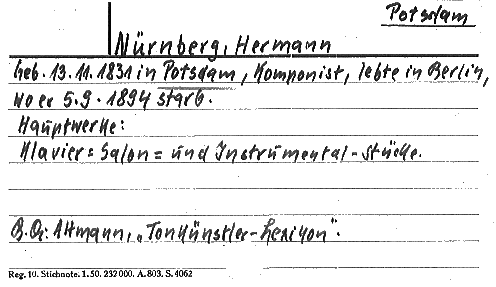 Potsdam
Nürnberg, Hermann
Geb. 13.11.1831 in Potsdam, Komponist, lebte in Berlin,
wo er 5.9.1894 starb.
Hauptwerke:
Klavier= Salon= und Instrumental-Stücke.
B.Qu: Altmann, „Tonkünstler-Lexikon".
Reg. 10. Stichnote. 1.50. 232000. A. 803. S. 4062